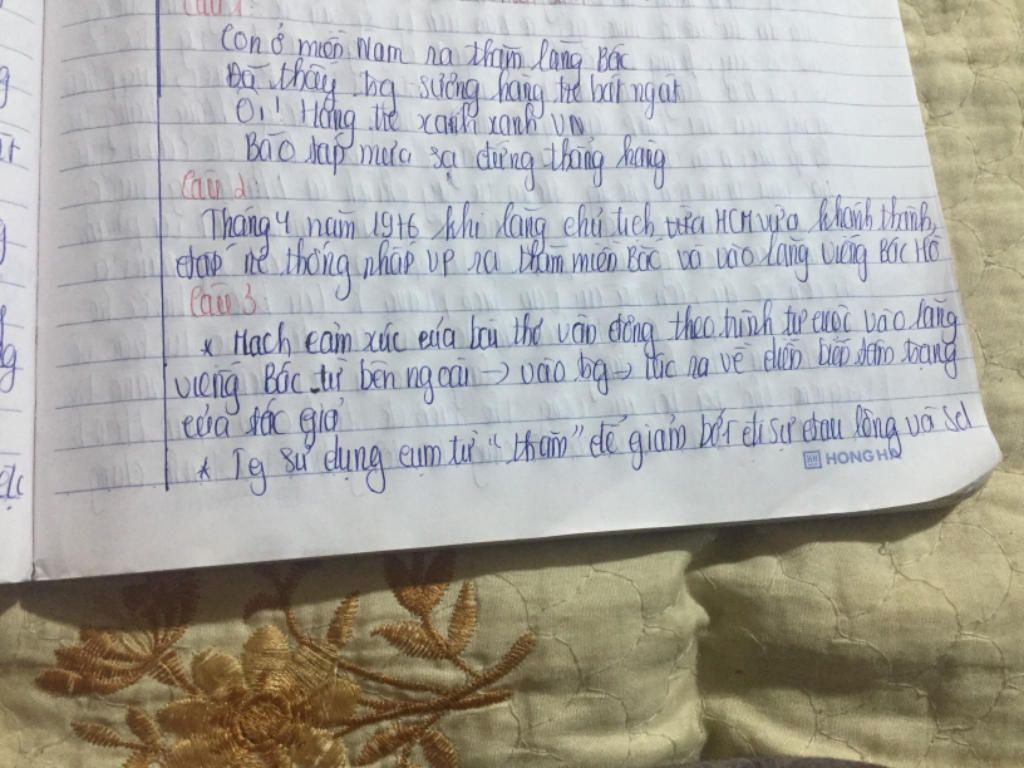 Câu 1:
Con ở miền Nam ra thăm lăng Bác
Đã thấy trg sương hàng tre bát ngát
Ôi! Hàng tre xanh xanh VN
Bão táp mưa sa đứng thẳng hàng
Câu 2:
Tháng 4 năm 1976 khi lăng chủ tịch HCM vừa khánh thành,
thống nhấp VP ra thăm miền Bắc và vào lăng viếng Bác Hồ
Câu 3:
* Mạch cảm xúc của bài thơ vận động theo trình tự cuộc vào lăng
viếng Bác từ bên ngoài → vào trg → lúc ra về diễn biến tâm trạng
của tác giả
* Tg sử dụng cụm từ "thăm" để giảm bớt đi sự đau lòng và sd
HONG HA